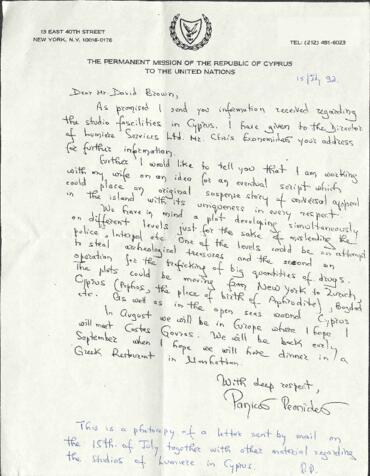 13 EAST 40TH STREET
NEW YORK, N.Y. 10016-0176
TEL: (212) 481-6023
THE PERMANENT MISSION OF THE REPUBLIC OF CYPRUS
TO THE UNITED NATIONS
15/July 92.
Dear Mr. David Brown,
As promised I send you information received regarding
the studio fascilities in Cyprus. I have given to the Director
of Lumière Services Ltd. Mr. Chris Economides your address
for further information.
Further I would like to tell you that I am working
with my wife on an idea for an eventual script which
could place an original suspense story of universal appeal
in the island with its uniqueness in every respect.
We have in mind a plot developing simultaneously
on different levels just for the sake of misleading the
police, Interpol etc. One of the levels could be an attempt
to steal archeological treasures and the second an
operation for the trafficking of big quantities of drugs.
The plots could be moving from New York to Zurich,
Cyprus (Paphos, the place of birth of Aphrodite), Bagdad
etc. As well as in the open seas around Cyprus
In August we will be in Europe where I hope I
will meet Costas Gavras. We will be back early
September when I hope we will have dinner in a
Greek Restaurant in Manhattan.
With deep respect,
Panicos Peonides
This is a photocopy of a letter sent by mail on
the 15th of July together with other material regarding
the studios of Lumiere in Cyprus P.P.